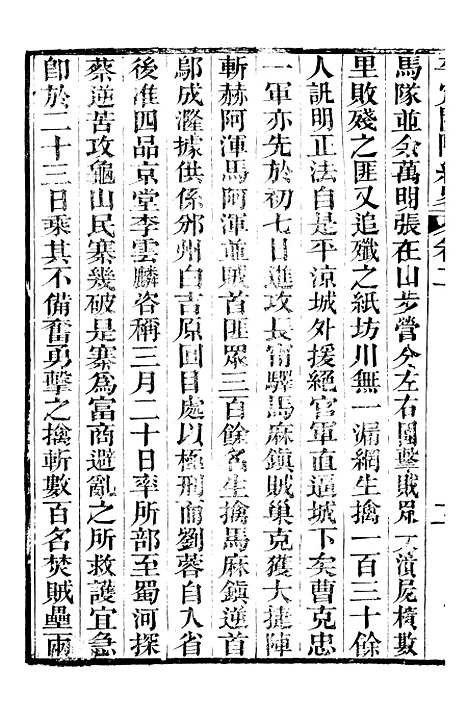 平定關隴紀畧 卷二
馬隊並余萬明張在山步營分左右圍擊賊眾大潰屍橫數
里敗殘之匪又追殲之紙坊川無一漏網生擒一百三十餘
人訊明正法自是平涼城外援絕官軍直逼城下矣曹克忠
一軍亦先於初七日進攻長甯驛馬麻鎮賊巢克獲大捷陣
斬赫阿渾馬阿渾並賊首匪眾三百餘名生擒馬麻鎮逆首
鄔成漋據供係邠州白吉原回目處以極刑而劉蓉自入省
後准四品京堂李雲麟咨稱三月二十日率所部至蜀河探
蔡逆苦攻龜山民寨幾破是寨為富商避亂之所救護宜急
卽於二十三日乘其不備奮勇擊之擒斬數百名焚賊壘兩